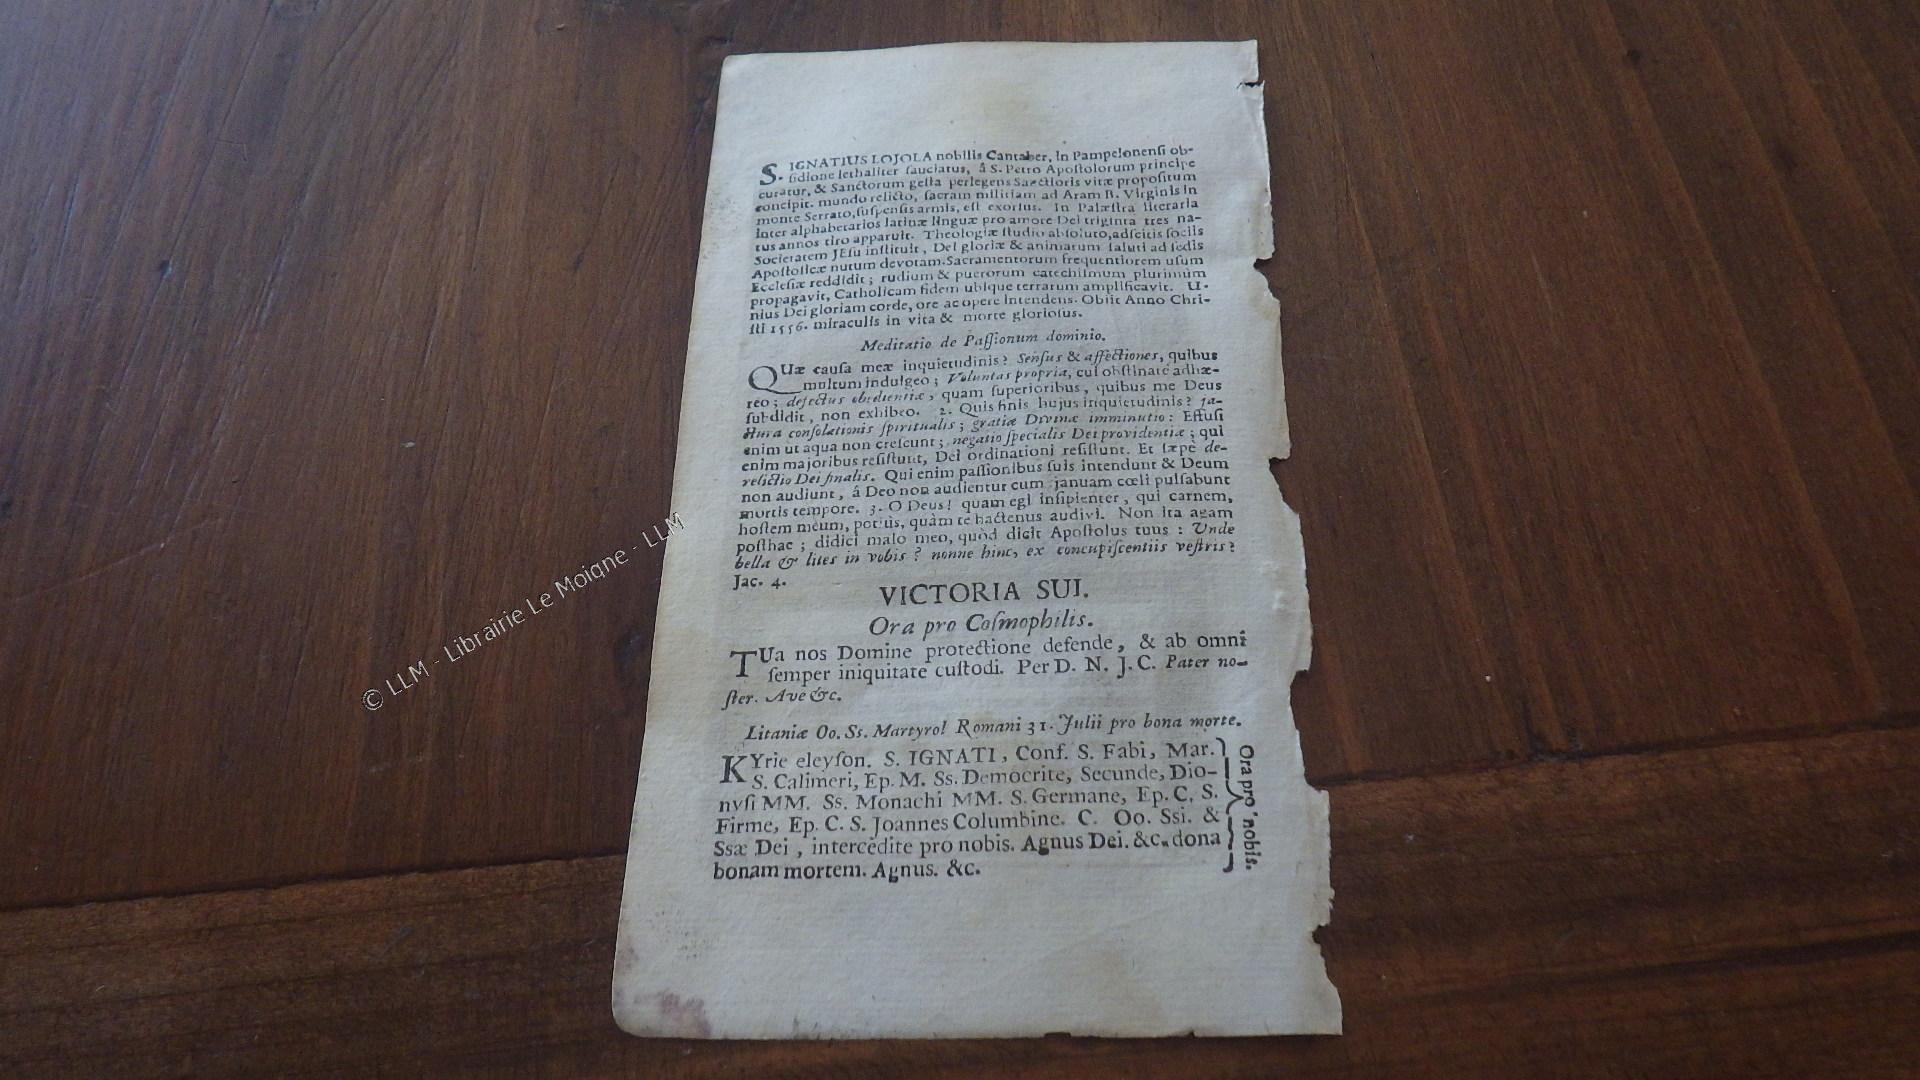 S. IGNATIUS LOJOLA nobilis Cantaber, in Pampelonensi ob-
sidione lethaliter sauciatus, â S. Petro Apostolorum principe
curatur, & Sanctorum gesta perlegens Sanctioris vitæ propositum
concipit. mundo relicto, sacram militiam ad Aram B. Virginis in
monte Serrato, suspensis armis, est exorsus. In Palæstra literaria
inter alphabetarios latinæ linguæ pro amore Dei triginta tres na-
tus annos tiro apparuit. Theologiæ studio absoluto, adscitis sociis
Societatem JEsu instituit, Dei gloriæ & animarum saluti ad sedis
Apostolicæ nutum devotam. Sacramentorum frequentiorem usum
Ecclesiæ reddidit; rudium & puerorum catechismum plurimùm
propagavit, Catholicam fidem ubique terrarum amplificavit. U-
nius Dei gloriam corde, ore ac opere intendens. Obiit Anno Chri-
sti 1556. miraculis in vita & morte gloriosus.
Meditatio de Passionum dominio.
QUæ causa meæ inquietudinis? Sensus & affectiones, quibus
multum indulgeo; Voluntas propria, cui obstinatè adhæ-
reo; defectus obedientiæ, quam superioribus, quibus me Deus
subdidit, non exhibeo. 2. Quis finis hujus inquietudinis? ja-
ctura consolationis spiritualis; gratiæ Divinæ imminutio: Effusi
enim ut aqua non crescunt; negatio specialis Dei providentiæ; qui
enim majoribus resistunt, Dei ordinationi resistunt. Et sæpè de-
relictio Dei finalis. Qui enim passionibus suis intendunt & Deum
non audiunt, á Deo non audientur cum januam cœli pulsabunt
mortis tempore. 3. O Deus! quam egi insipienter, qui carnem,
hostem meum, potiùs, quàm te hactenus audivi. Non ita agam
posthac; didici malo meo, quòd dicit Apostolus tuus: Unde
bella & lites in vobis? nonne hinc, ex concupiscentiis vestris?
Jac. 4.
VICTORIA SUI.
Ora pro Cosmophilis.
TUa nos Domine protectione defende, & ab omni
semper iniquitate custodi. Per D. N. J. C. Pater no-
ster. Ave &c.
Litaniæ Oo. Ss. Martyrol Romani 31. Julii pro bona morte.
KYrie eleyson. S. IGNATI, Conf. S. Fabi, Mar.
S. Calimeri, Ep. M. Ss. Democrite, Secunde, Dio-
nysi MM. Ss. Monachi MM. S. Germane, Ep. C. S.
Firme, Ep. C. S. Joannes Columbine. C. Oo. Ssi. &
Ssæ Dei, intercedite pro nobis. Agnus Dei. &c. dona
bonam mortem. Agnus. &c.
Ora pro nobis.
© LLM - Librairie Le Moigne - LLM